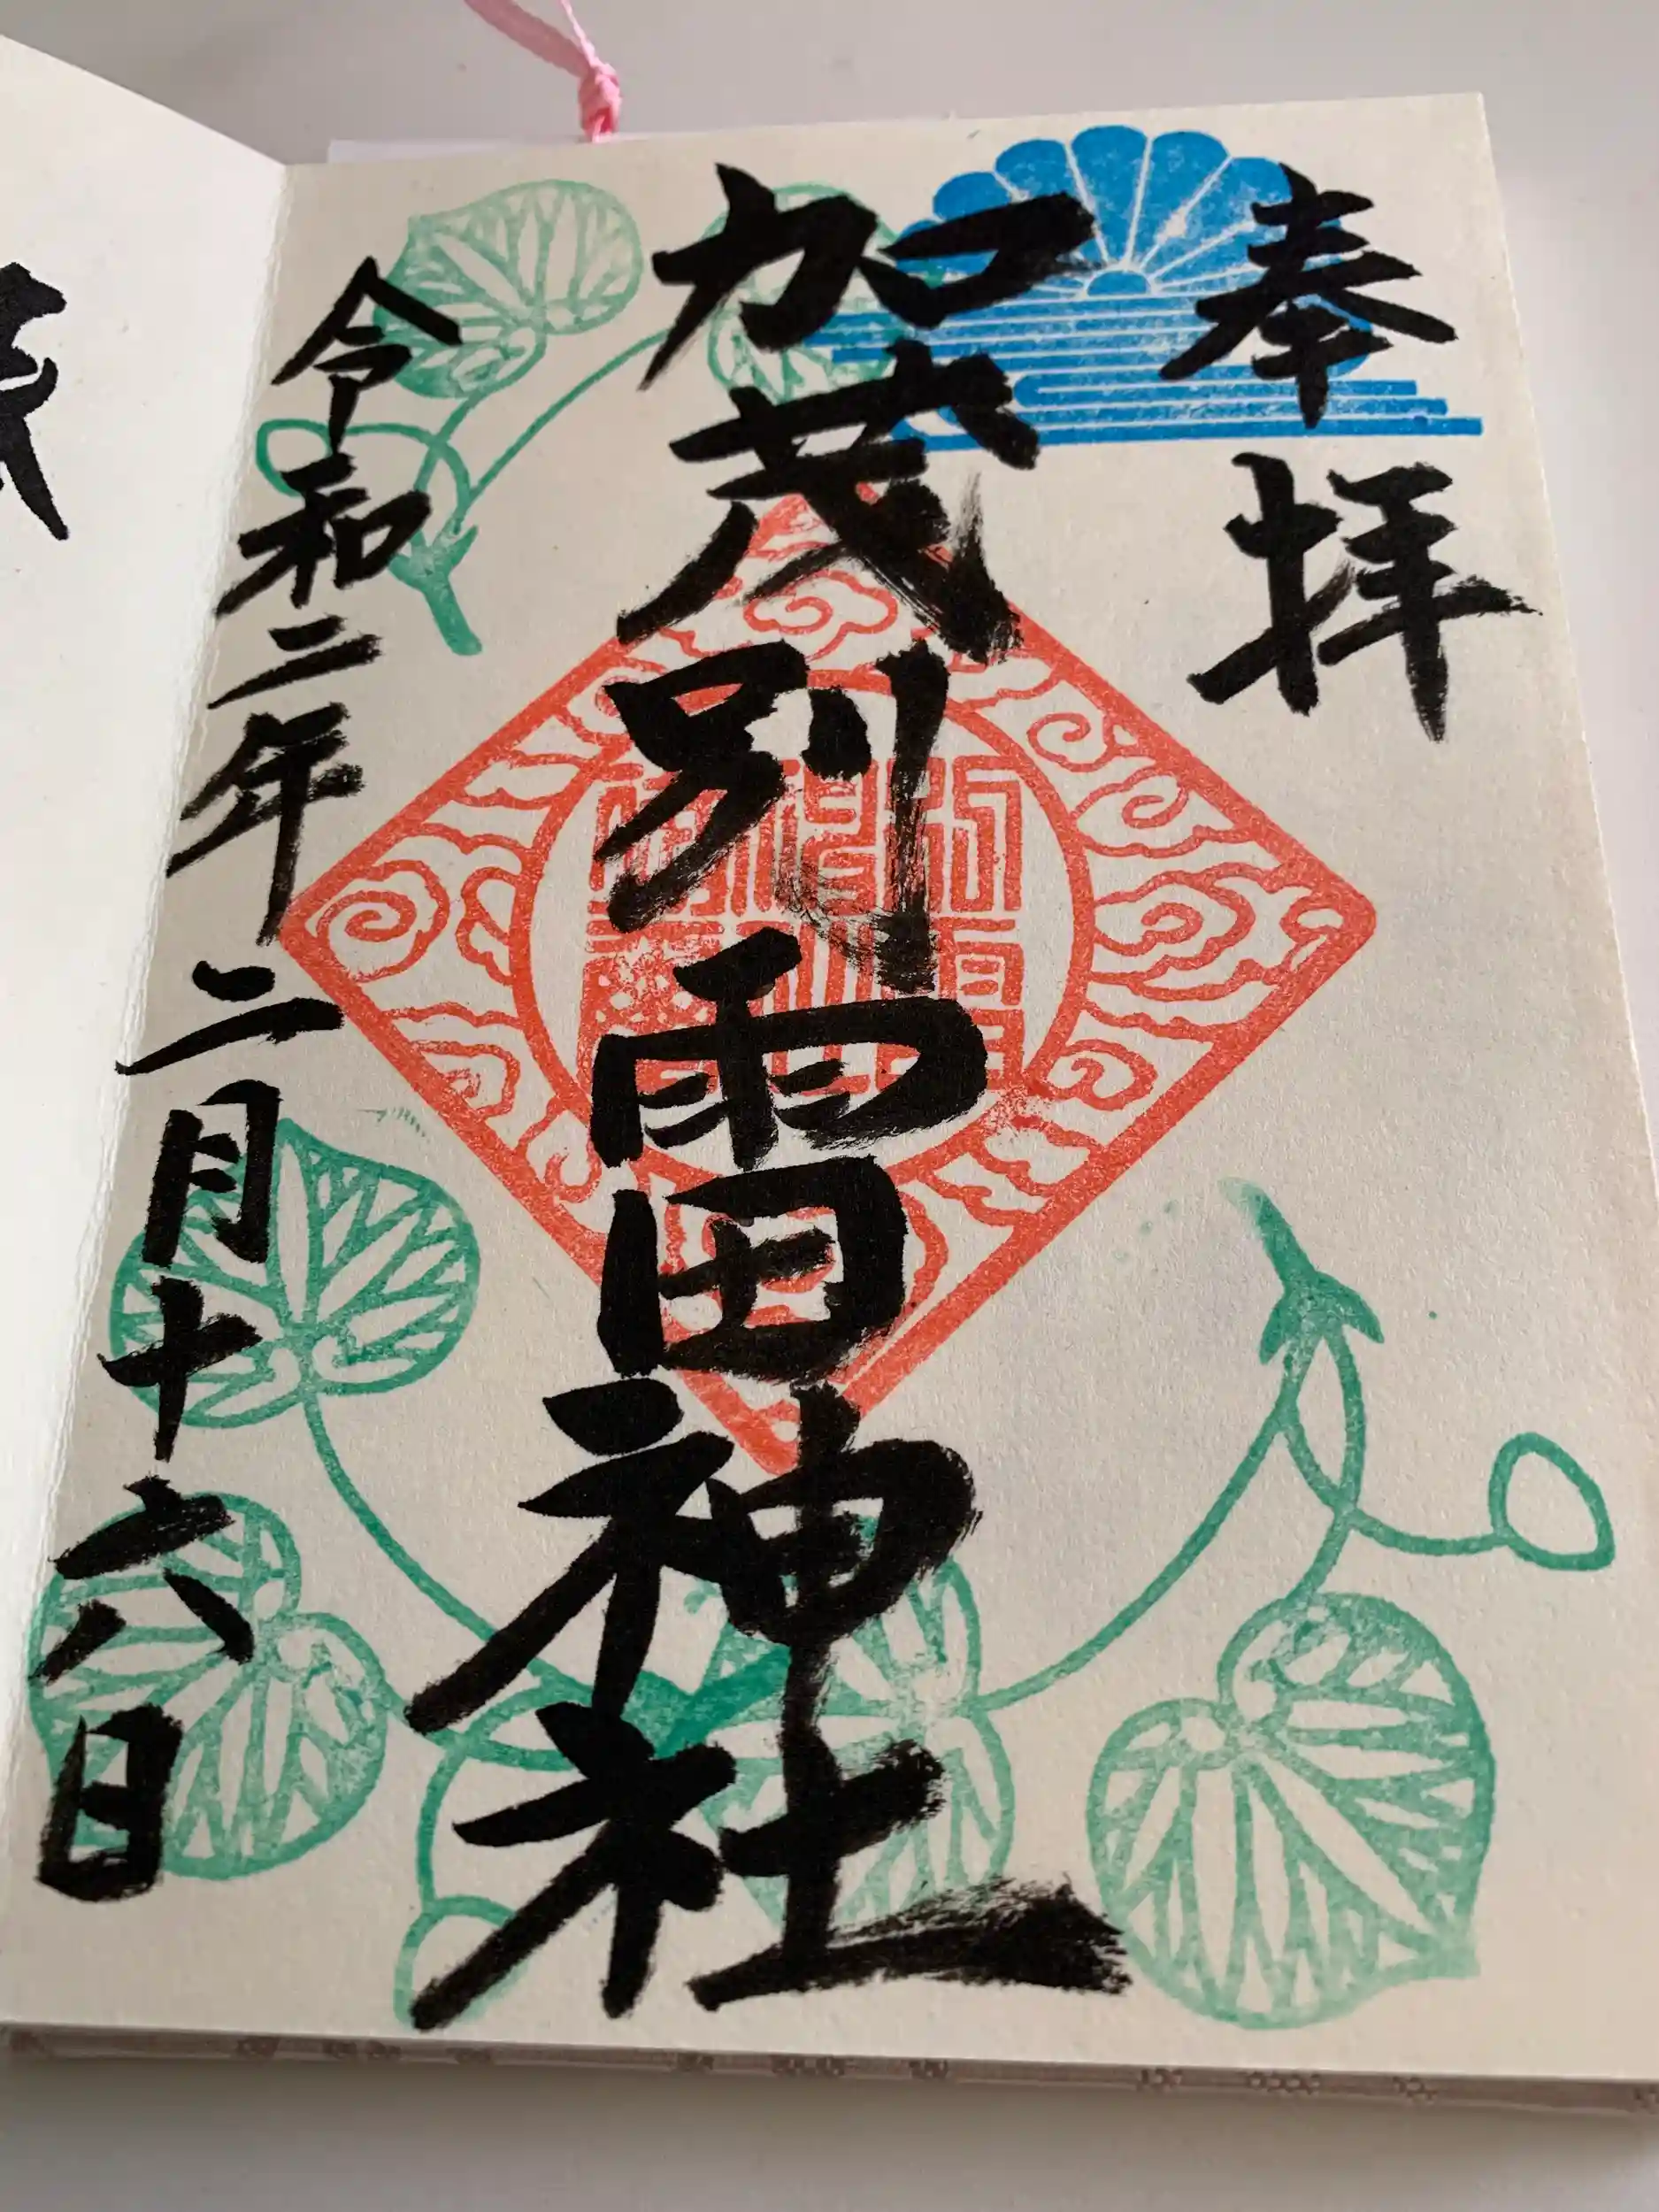 奉拝
加茂別雷神社
令和二年二月十六日